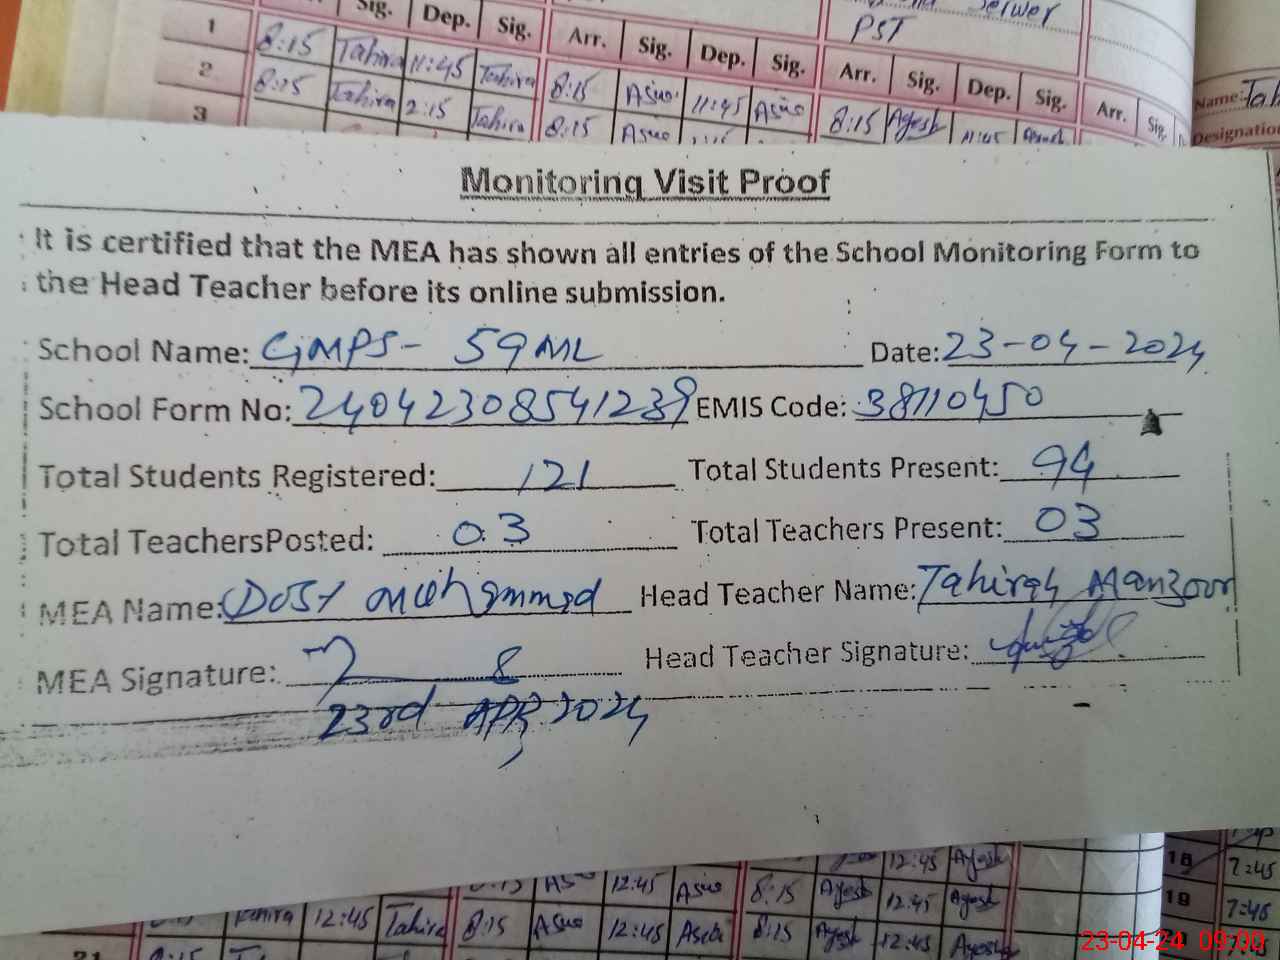 Sig. Dep. Sig. Arr. Sig. Dep. Sig. Arr. Sig. Dep. Sig. Arr. Sig.
PST
1 8:15 Tahira 11:45 Tahira 8:15 Asia 11:45 Asia 8:15 Ayesh 11:45
2 8:15 Tahira 2:15 Tahira 8:15 Asia
3
Name: Tah
Designation
Monitoring Visit Proof
It is certified that the MEA has shown all entries of the School Monitoring Form to
the Head Teacher before its online submission.
School Name: GMPS- 59ML Date: 23-04-2024
School Form No: 24042308541239 EMIS Code: 38110450
Total Students Registered: 121 Total Students Present: 94
Total TeachersPosted: 03 Total Teachers Present: 03
MEA Name: Dost Muhammad Head Teacher Name: Tahirah Manzoor
MEA Signature: Head Teacher Signature:
23rd APR, 2024
12:45 Ayesh 18 7:45
8:15 As 12:45 Asia 8:15 Ayesh 12:45 Ayesh 19 7:45
Tahira 12:45 Tahira 8:15 Asia 12:45 Asia 8:15 Ayesh 12:45 Ayesha
21
23-04-24 09:00